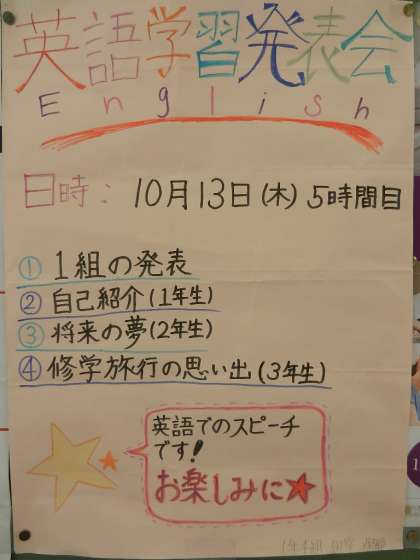 英語学習発表会
English
日時: 10月13日(木) 5時間目
① 1組の発表
② 自己紹介(1年生)
③ 将来の夢(2年生)
④ 修学旅行の思い出(3年生)
英語でのスピーチ
です!
お楽しみに★